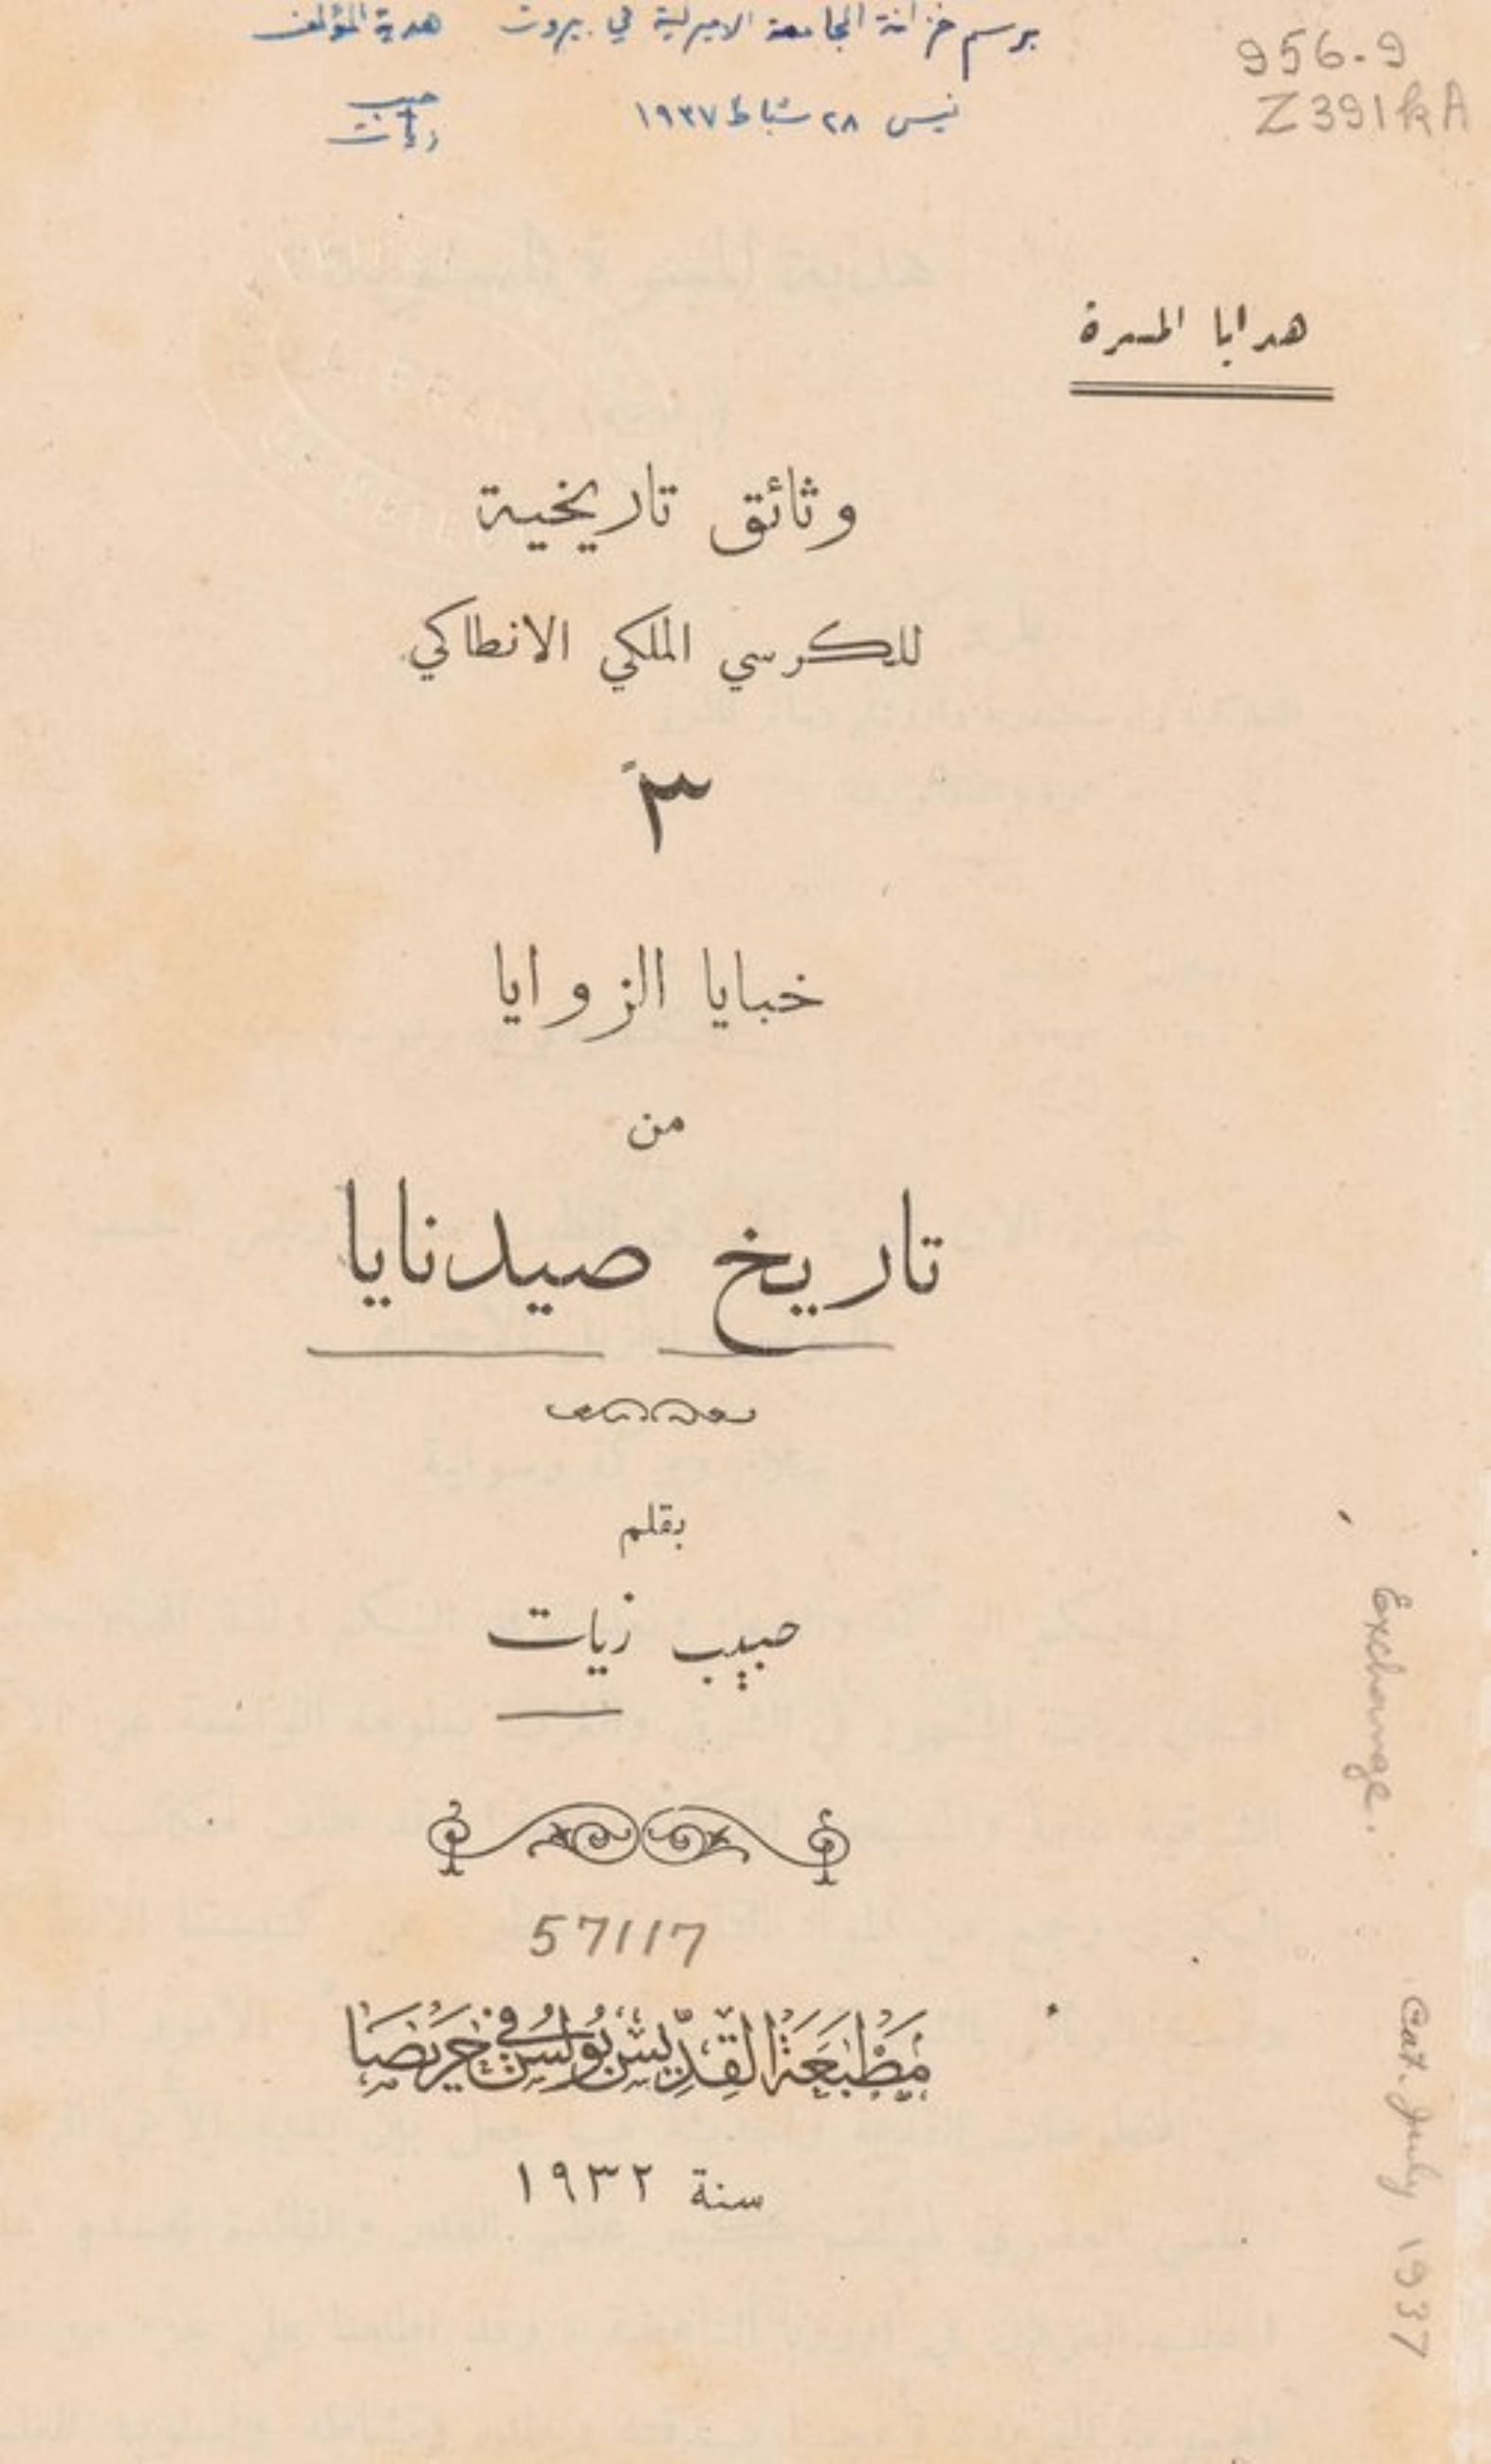 برسم خزانة الجامعة الاميركية في بيروت هدية المؤلف
نيس ٢٨ شباط ١٩٣٧
حبيب
زيات
956.9
Z391kA
هدايا المسرة
وثائق تاريخية
للكرسي الملكي الانطاكي
٣
خبايا الزوايا
من
تاريخ صيدنايا
بقلم
حبيب زيات
57117
مَطْبَعَة القِدِّيس بُولُسْ في حَرِيصَا
سنة ١٩٣٢
Exchange.
Cat. July 1937